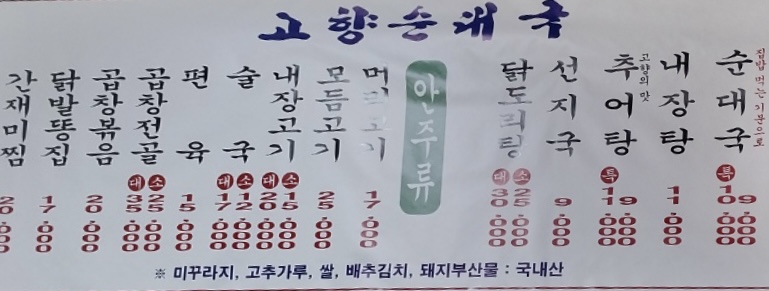 고향순대국
집밥 먹는 기분으로
순대국
특 10.000
9.000
내장탕
11.000
고향의 맛
추어탕
특 11.000
9.000
선지국
9.000
닭도리탕
대 30.000
소 25.000
안주류
머리고기
17.000
모듬고기
25.000
내장고기
대 20.000
소 15.000
술국
대 17.000
소 12.000
편육
15.000
곱창전골
대 35.000
소 25.000
곱창볶음
20.000
닭발똥집
17.000
간재미찜
20.000
※ 미꾸라지, 고추가루, 쌀, 배추김치, 돼지부산물 : 국내산